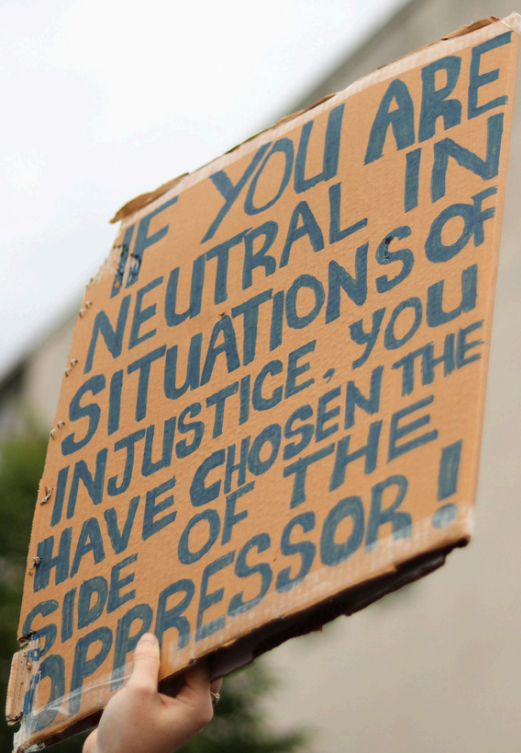 IF YOU ARE
NEUTRAL IN
SITUATIONS OF
INJUSTICE, YOU
HAVE CHOSEN THE
SIDE OF THE
OPPRESSOR!